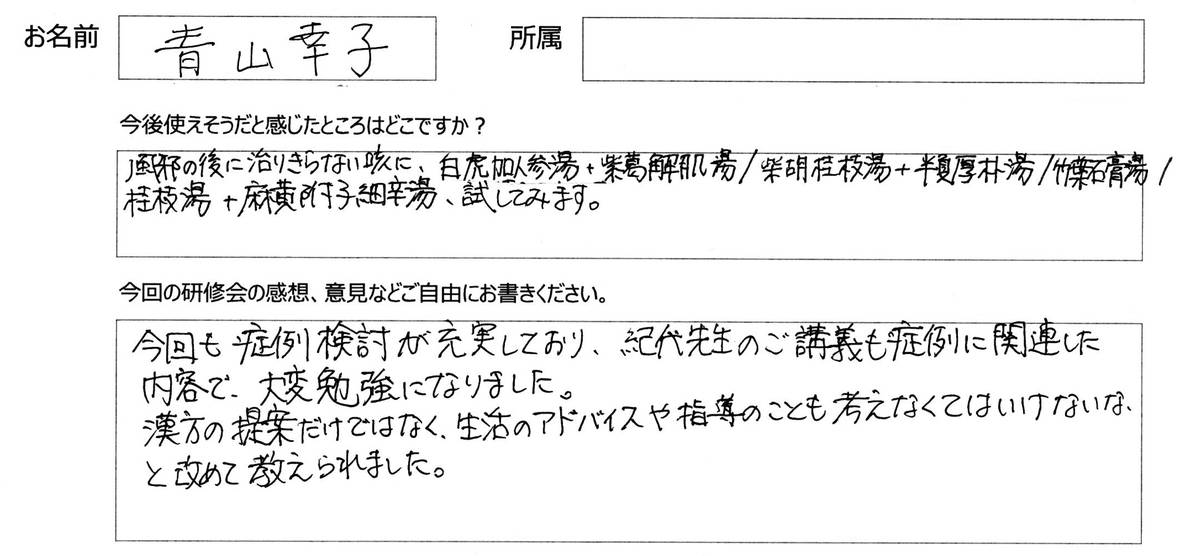 お名前 青山幸子 所属
今後使えそうだと感じたところはどこですか？
風邪の後に治りきらない咳に、白虎加人参湯+柴葛解肌湯/柴胡桂枝湯+半夏厚朴湯/竹葉石膏湯/
桂枝湯+麻黄附子細辛湯、試してみます。
今回の研修会の感想、意見などご自由にお書きください。
今回も症例検討が充実しており、紀代先生のご講義も症例に関連した
内容で、大変勉強になりました。
漢方の提案だけではなく、生活のアドバイスや指導のことも考えなくてはいけないな、
と改めて教えられました。